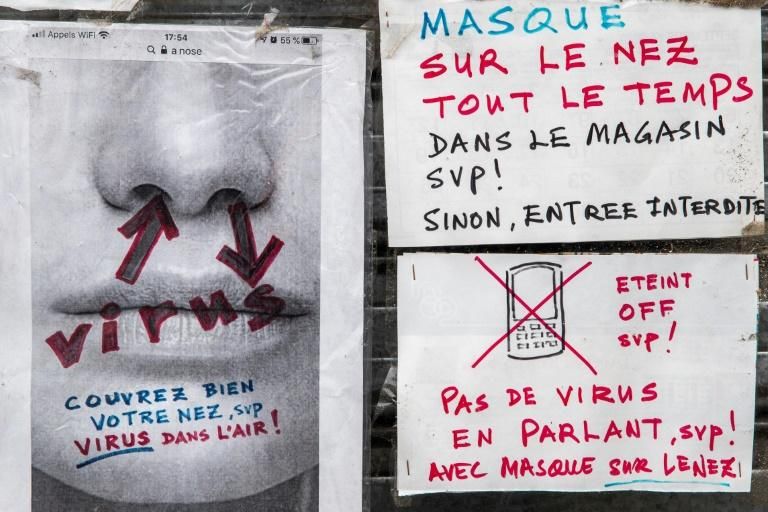 Appels WiFi 17:54 55 %
a nose
virus
COUVREZ BIEN
VOTRE NEZ, SVP
VIRUS DANS L'AIR!
MASQUE
SUR LE NEZ
TOUT LE TEMPS
DANS LE MAGASIN
SVP!
SINON, ENTREE INTERDITE
ETEINT
OFF
SVP!
PAS DE VIRUS
EN PARLANT, SVP!
AVEC MASQUE SUR LE NEZ